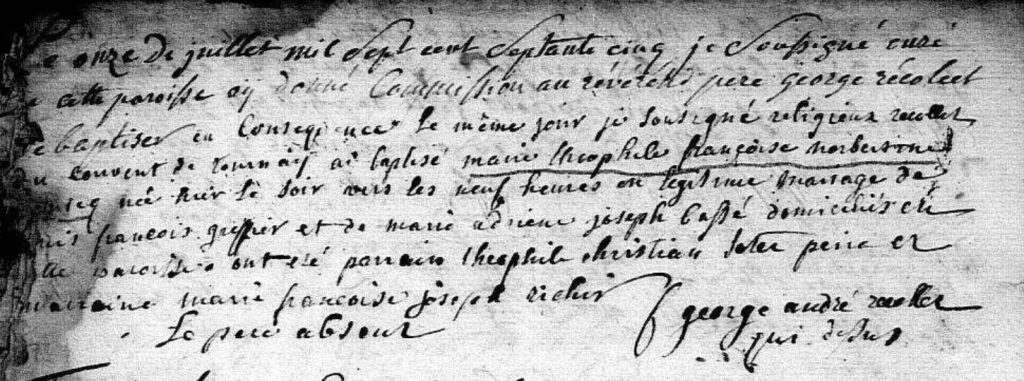 Le onze de juillet mil sept cent septante cinq je Soussigné curé
de cette paroisse aÿ donné Commission au révérend pere george récolect
de baptiser en Conseqience le même jour je sousigné religieux recollet
du couvent de tournaÿ ai baptisé marie theophile françoise norbertine
née hier le soir vers les neuf heures en legitime mariage de
françois et de marie adriene joseph bassé domiciliés en
paroisse ont été parrain theophile christian peire et
marraine marie francoise joseph richir
Le pere absent
george andré recollet
qui desus